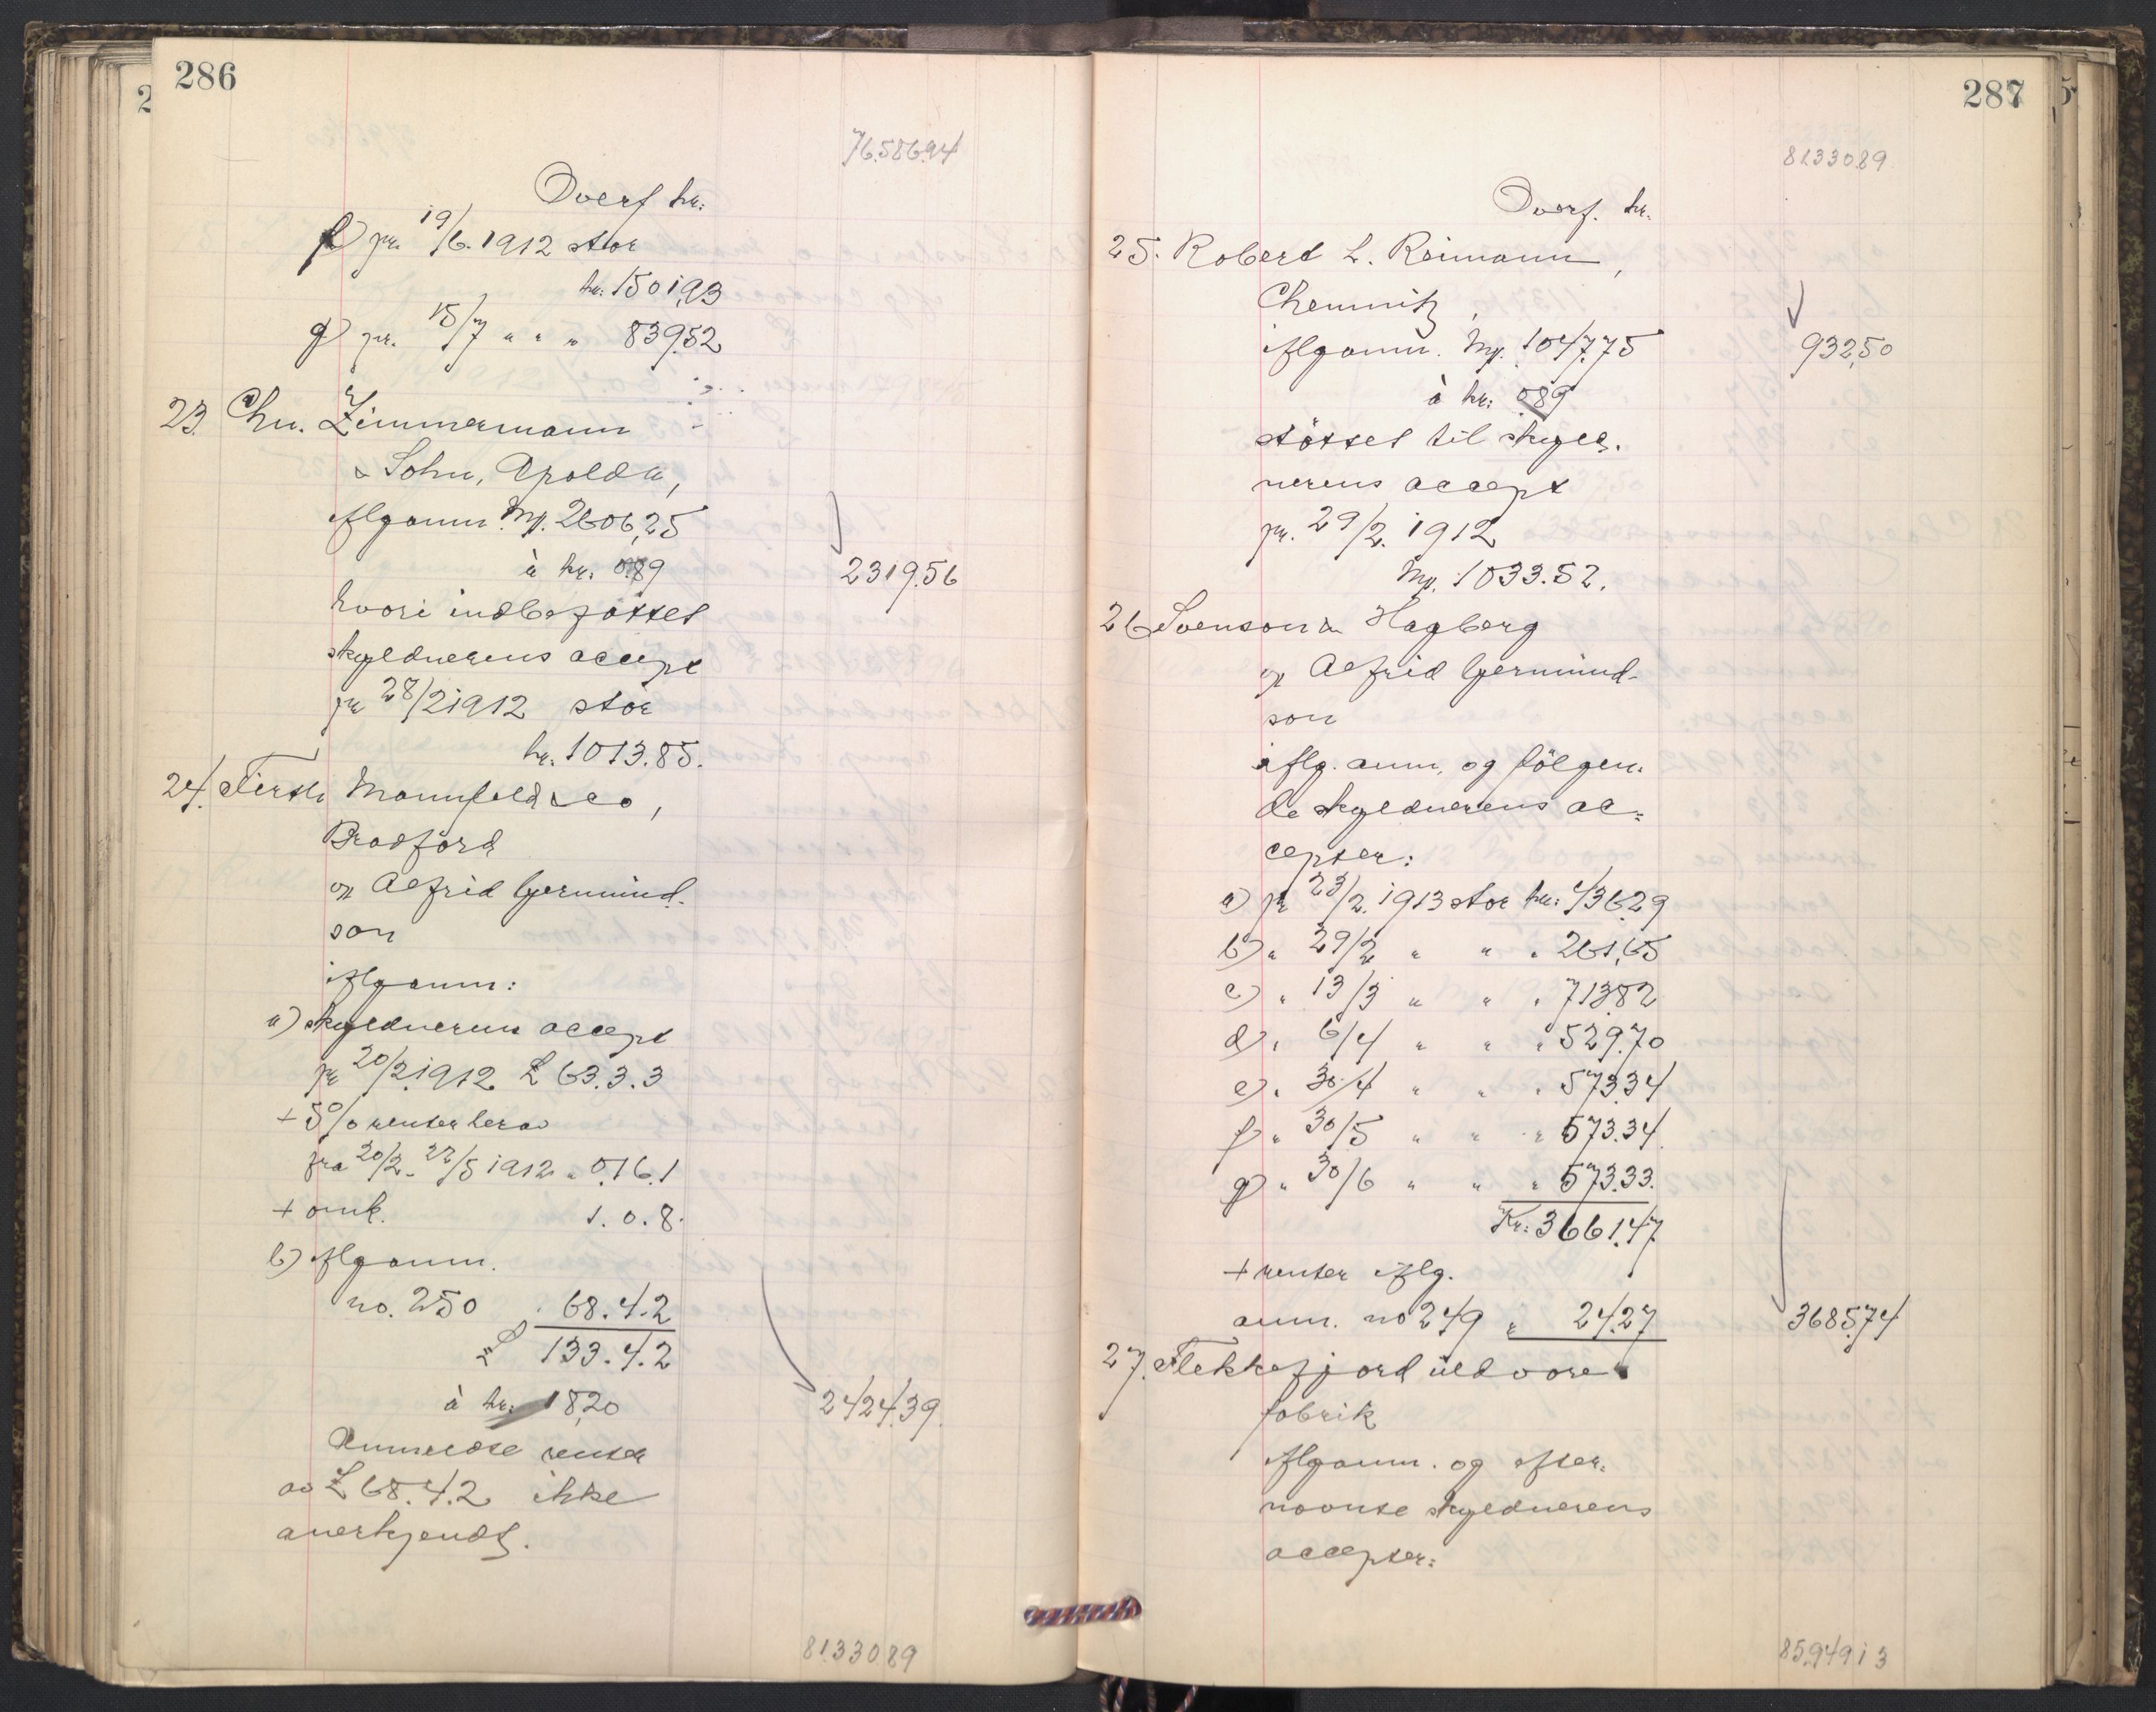 286
76.586.94
Overf kr:
f) pr. 19/6. 1912 stor
kr: 1501,93
g) pr. 15/7 " " " 839.52
23. Chr. Zimmermann
& Sohn, Apolda,
iflg anm. Mk. 2606,25
à kr. 0.89 2319.56
hvori indbefattet
skyldnerens accept
pr 28/2 1912 stor
kr. 1013.85.
24. Firth Mannfeld & Co,
Bradford
v/ Alfrid Germund-
son
iflg anm:
a) skyldnerens accept
pr 20/2 1912 £ 63.3.3
+ 5% renter herav
fra 20/2 - 22/5 1912 " 0.16.1
+ omk. 1. 0. 8.
b) iflg anm.
no. 250 . 68.4.2
£ 133.4.2
à kr: 18,20 2424.39.
Anmeldte renter
av £ 68.4.2 ikke
anerkjendt.
81.330.89
287
81.330.89
Overf. kr.
25. Robert L. Reimann,
Chemnitz,
iflg anm. Mk. 1047.75 932,50
à kr: 0.89
støttet til skyld-
nerens accept
pr. 29/2. 1912
Mk. 1033.52.
26 Svenson & Hagberg
v/ Alfrid Germund-
son
iflg. anm. og følgen-
de skyldnerens ac-
cepter:
a) pr 23/2. 1913 stor kr: 436.29
b) " 29/2 " " " 261,65
c) " 13/3 " " " 713.82
d) " 6/4 " " " 529.70
e) " 30/4 " " " 573.34
f) " 30/5 " " " 573.34
g) " 30/6 " " " 573.33.
Kr: 3661.47
+ renter iflg.
anm. no 249 " 24.27 3685.74
27. Flekkefjord uldvare-
fabrik
iflg anm. og efter-
nævnte skyldnerens
accepter:
85.949.13